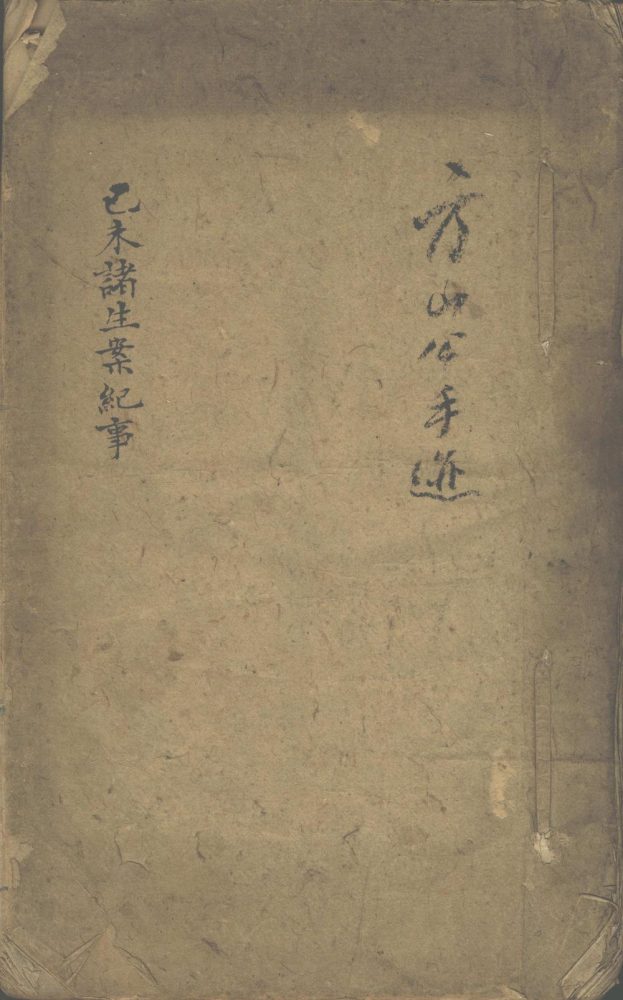 方山公手迹
己未諸生案紀事